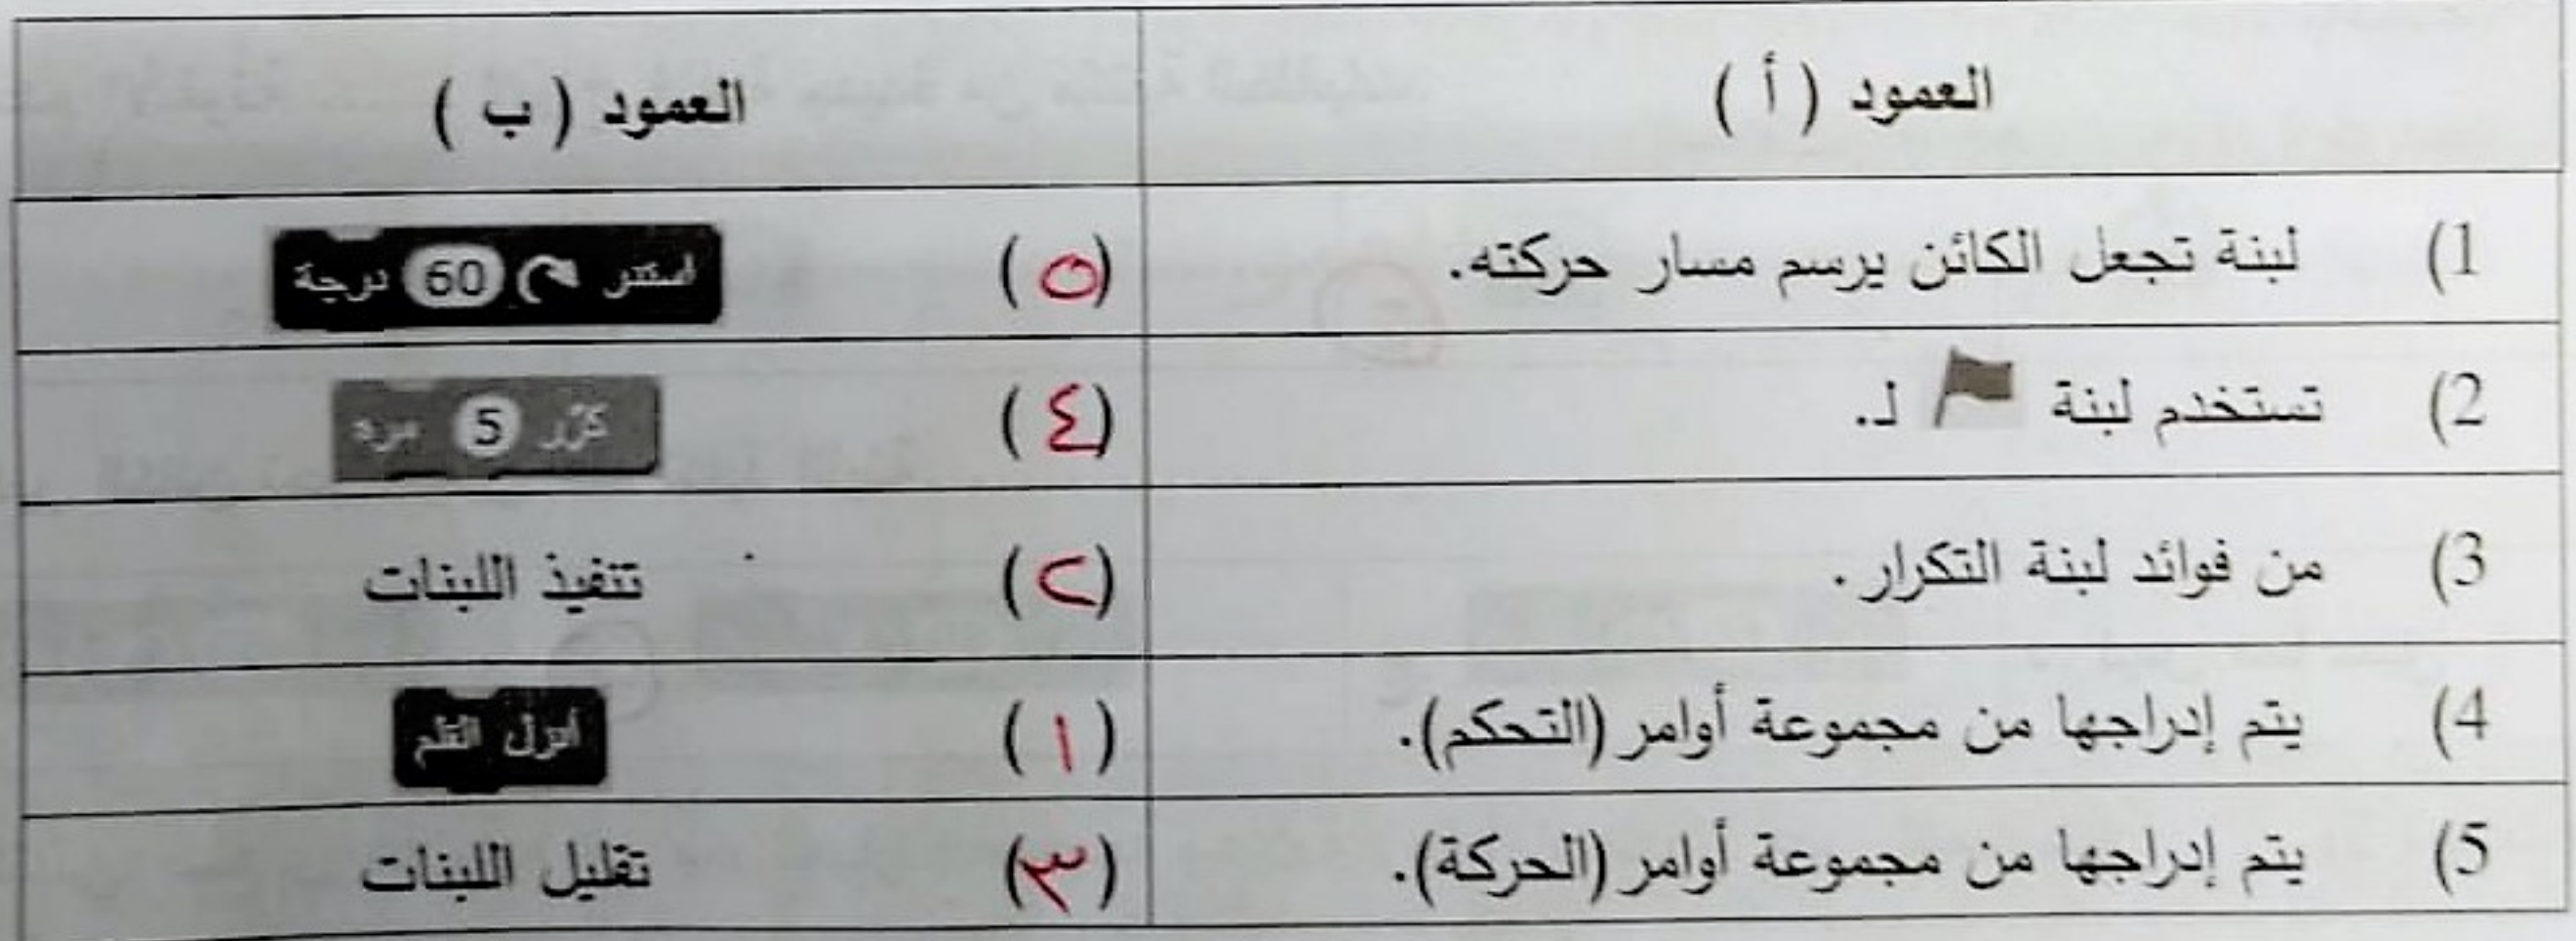 العمود ( أ )
العمود ( ب )
1) لبنة تجعل الكائن يرسم مسار حركته.
(٥) استدر 60 درجة
2) تستخدم لبنة لـ.
(٤) كرّر 5 مرة
3) من فوائد لبنة التكرار.
(٢) تنفيذ اللبنات
4) يتم إدراجها من مجموعة أوامر (التحكم).
(١) أنزل القلم
5) يتم إدراجها من مجموعة أوامر (الحركة).
(٣) تقليل اللبنات